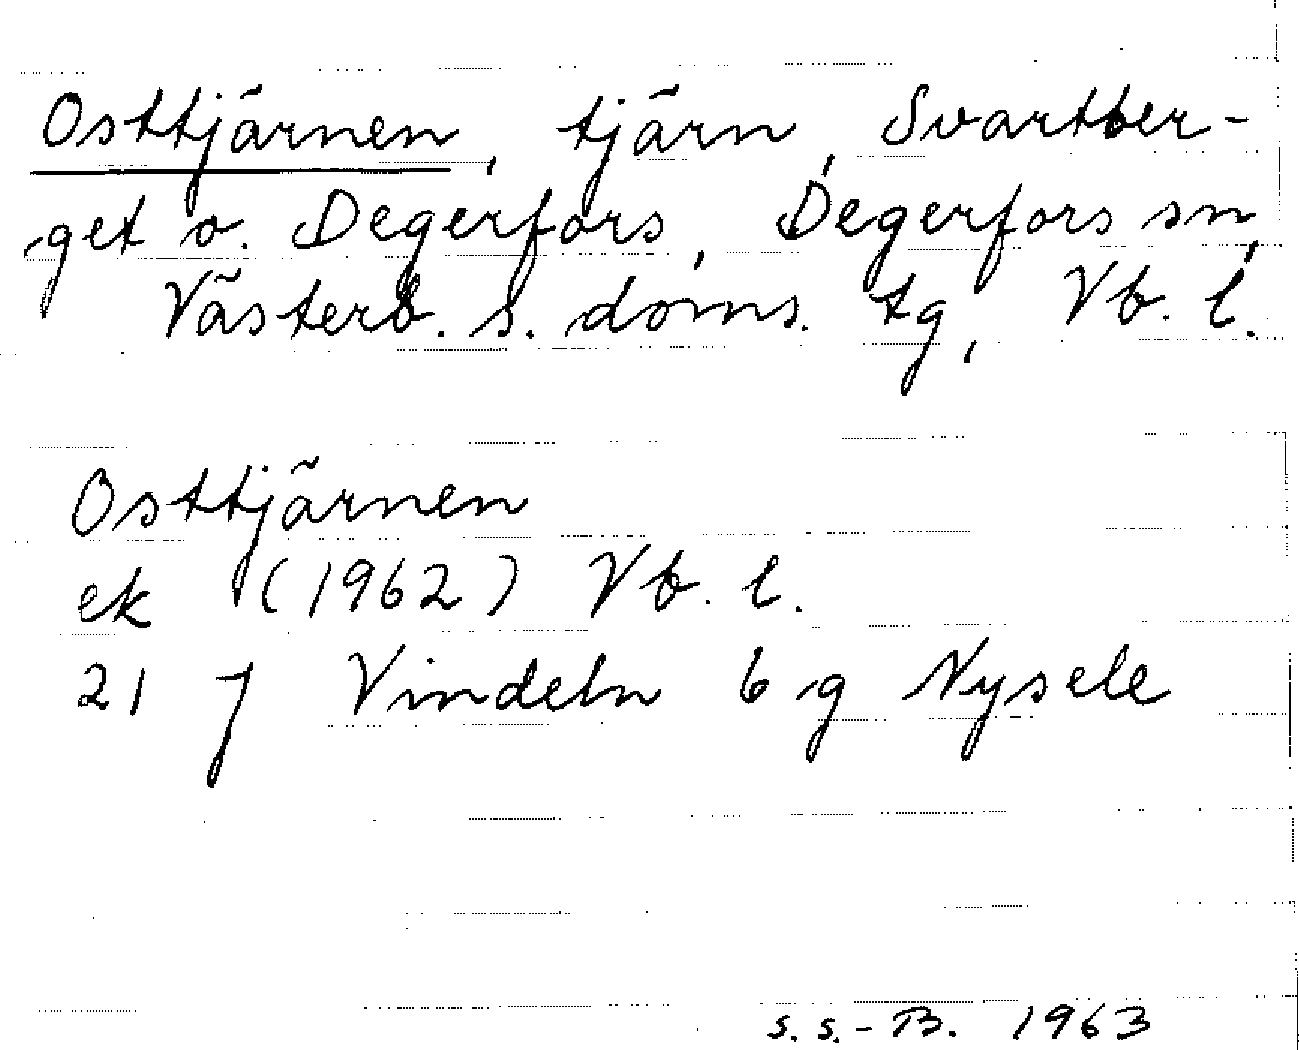 Osttjärnen, tjärn, Svartber-
get o. Degerfors, Degerfors sn,
Västerb. s. doms. tg, Vb. l.
Osttjärnen
ek (1962) Vb. l.
21 J Vindeln 6 g Nysele
S. S.-B. 1963